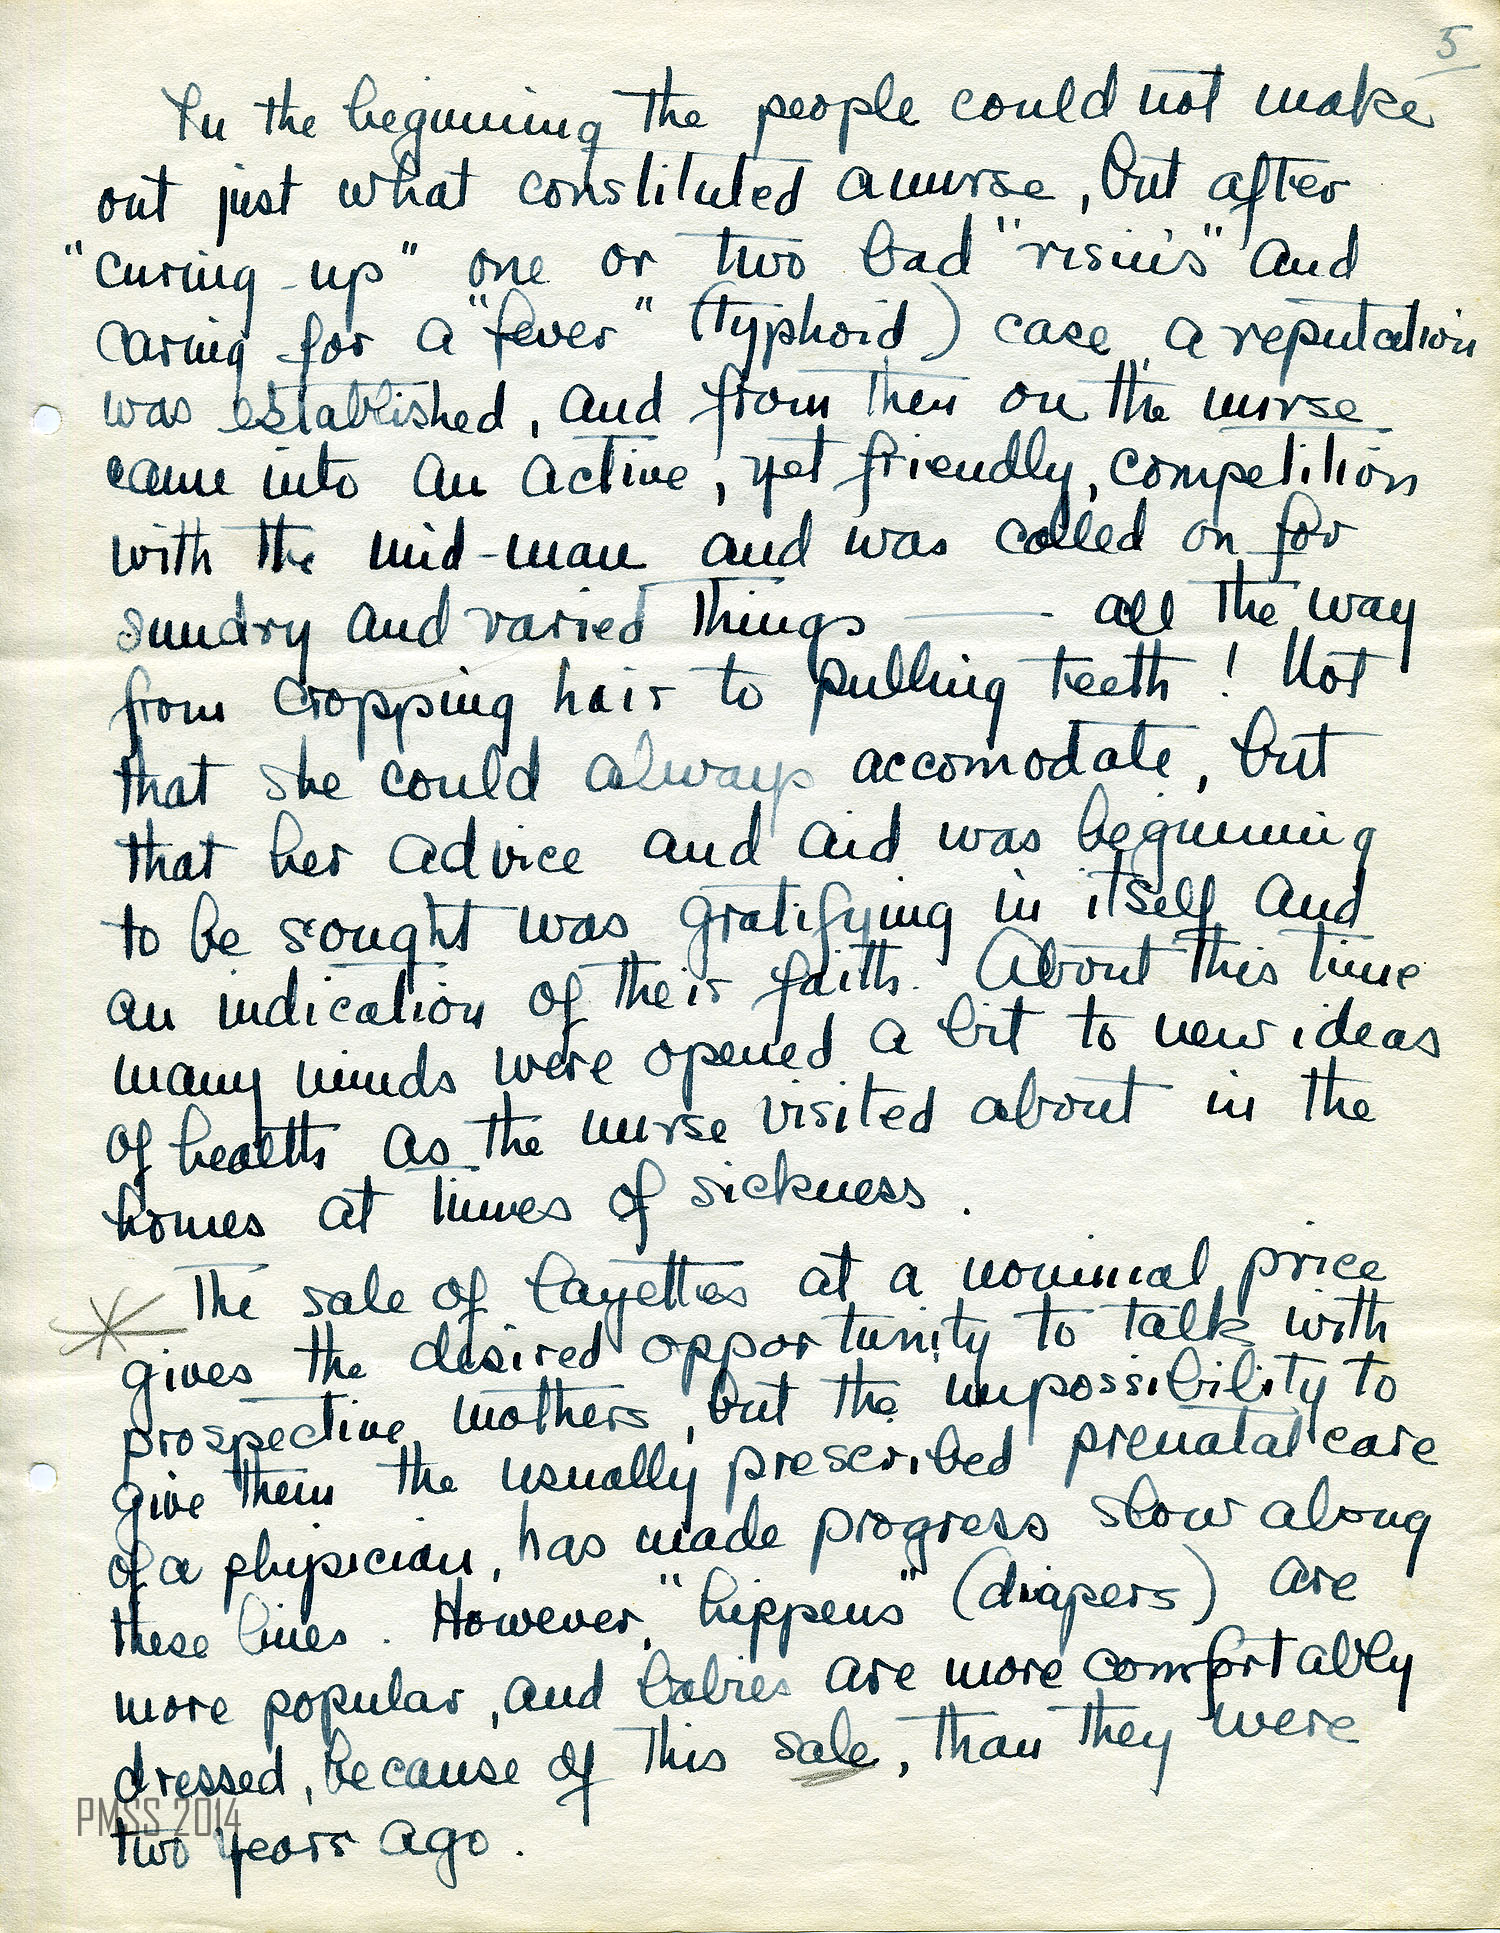 5
In the beginning the people could not make
out just what constituted a nurse, but after
"curing-up" one or two bad "risin's" and
caring for a "fever" (typhoid) case, a reputation
was established, and from then on the nurse
came into an active, yet friendly, competition
with the mid-man and was called on for
sundry and varied things — all the way
from cropping hair to pulling teeth! Not
that she could always accomodate, but
that her advice and aid was beginning
to be sought was gratifying in itself and
an indication of their faith. About this time
many minds were opened a bit to new ideas
of health as the nurse visited about in the
homes at times of sickness.
The sale of layettes at a nominal price
gives the desired opportunity to talk with
prospective mothers, but the impossibility to
give them the usually prescribed prenatal care
of a physician, has made progress slow along
these lines. However, "hippens" (diapers) are
more popular, and babies are more comfortably
dressed, because of this sale, than they were
two years ago.
PMSS 2014